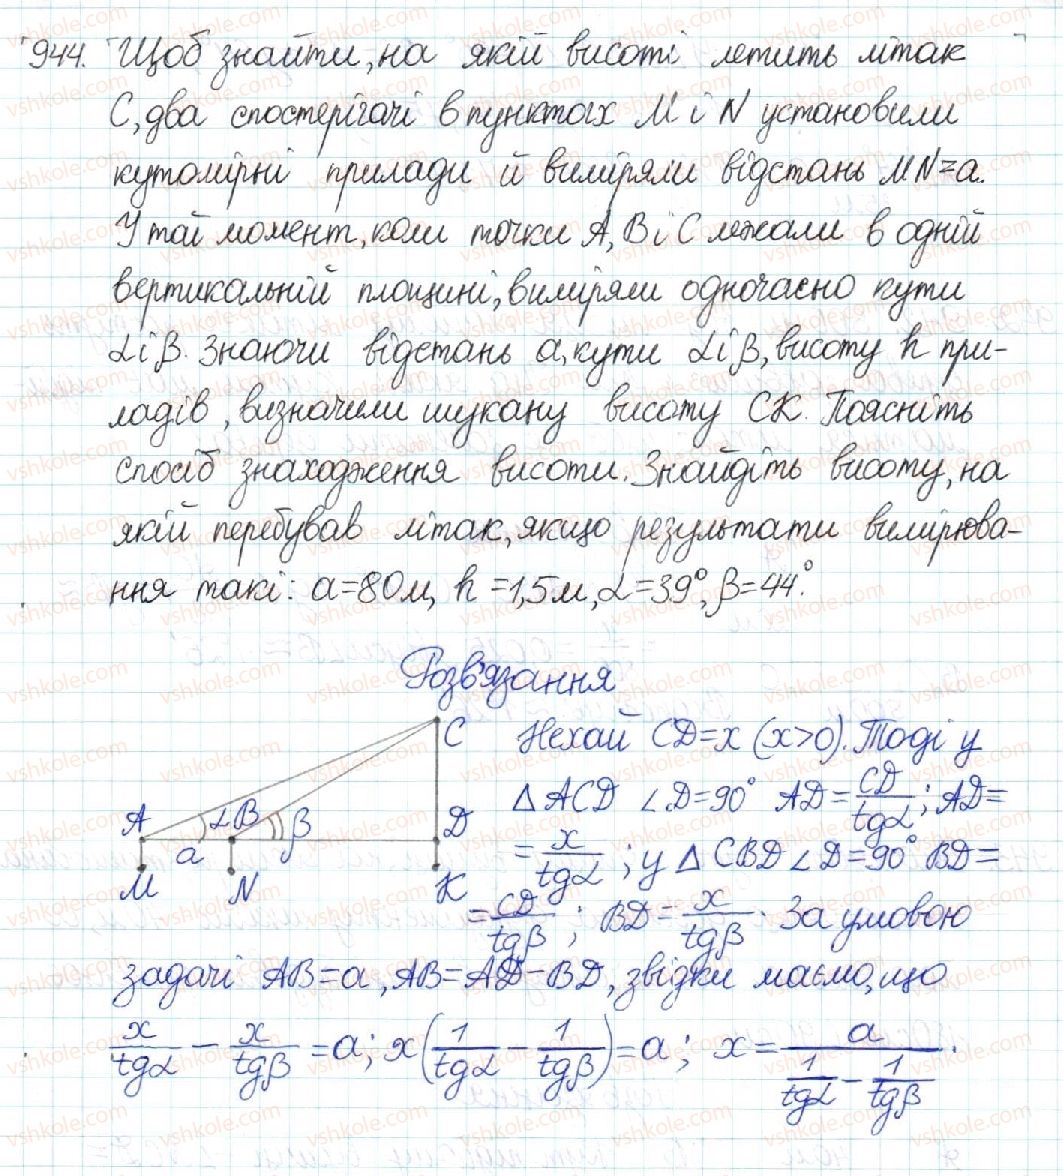 944. Щоб знайти, на якій висоті летить літак
С, два спостерігачі в пунктах M і N установили
кутомірні прилади й виміряли відстань MN=a.
У той момент, коли точки A, B і C лежали в одній
вертикальній площині, виміряли одночасно кути
α і β. Знаючи відстань a, кути α і β, висоту h при-
ладів, визначили шукану висоту CK. Поясніть
спосіб знаходження висоти. Знайдіть висоту, на
якій перебував літак, якщо результати вимірюва-
ння такі: a=80м, h=1,5м, α=39°, β=44°.
Розв'язання
C
A α B β D
a
M N K
Нехай CD=x (x>0). Тоді у
△ACD ∠D=90° AD=CD/tgα; AD=
=x/tgα; у △CBD ∠D=90° BD=
=CD/tgβ; BD=x/tgβ. За умовою
задачі AB=a, AB=AD-BD, звідки маємо, що
x/tgα - x/tgβ = a; x(1/tgα - 1/tgβ)=a; x=a/(1/tgα - 1/tgβ).